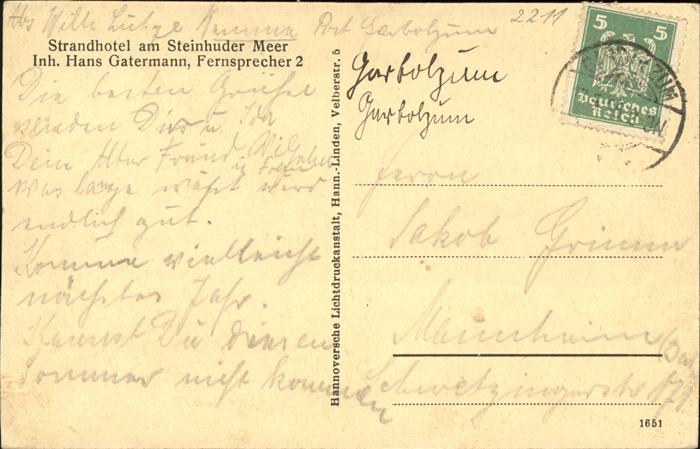 Abs Wille Lutze Post Garbolzum
2211
Strandhotel am Steinhuder Meer
Inh. Hans Gatermann, Fernsprecher 2
Die besten Grüße
senden Dir u. Ida
Dein Alter Freund Wilhelm
u Frau
was lange währt wird
endlich gut.
Komme vielleicht
nächstes Jahr.
Kannst Du diesen
Sommer nicht kommen
Hannoversche Lichtdruckanstalt, Hann.-Linden, Velberstr. 5
Garbolzum
Garbolzum
5 5
Deutsches
Reich
Herrn
Jakob Grimm
Mannheim
Schwetzingerstr
1651